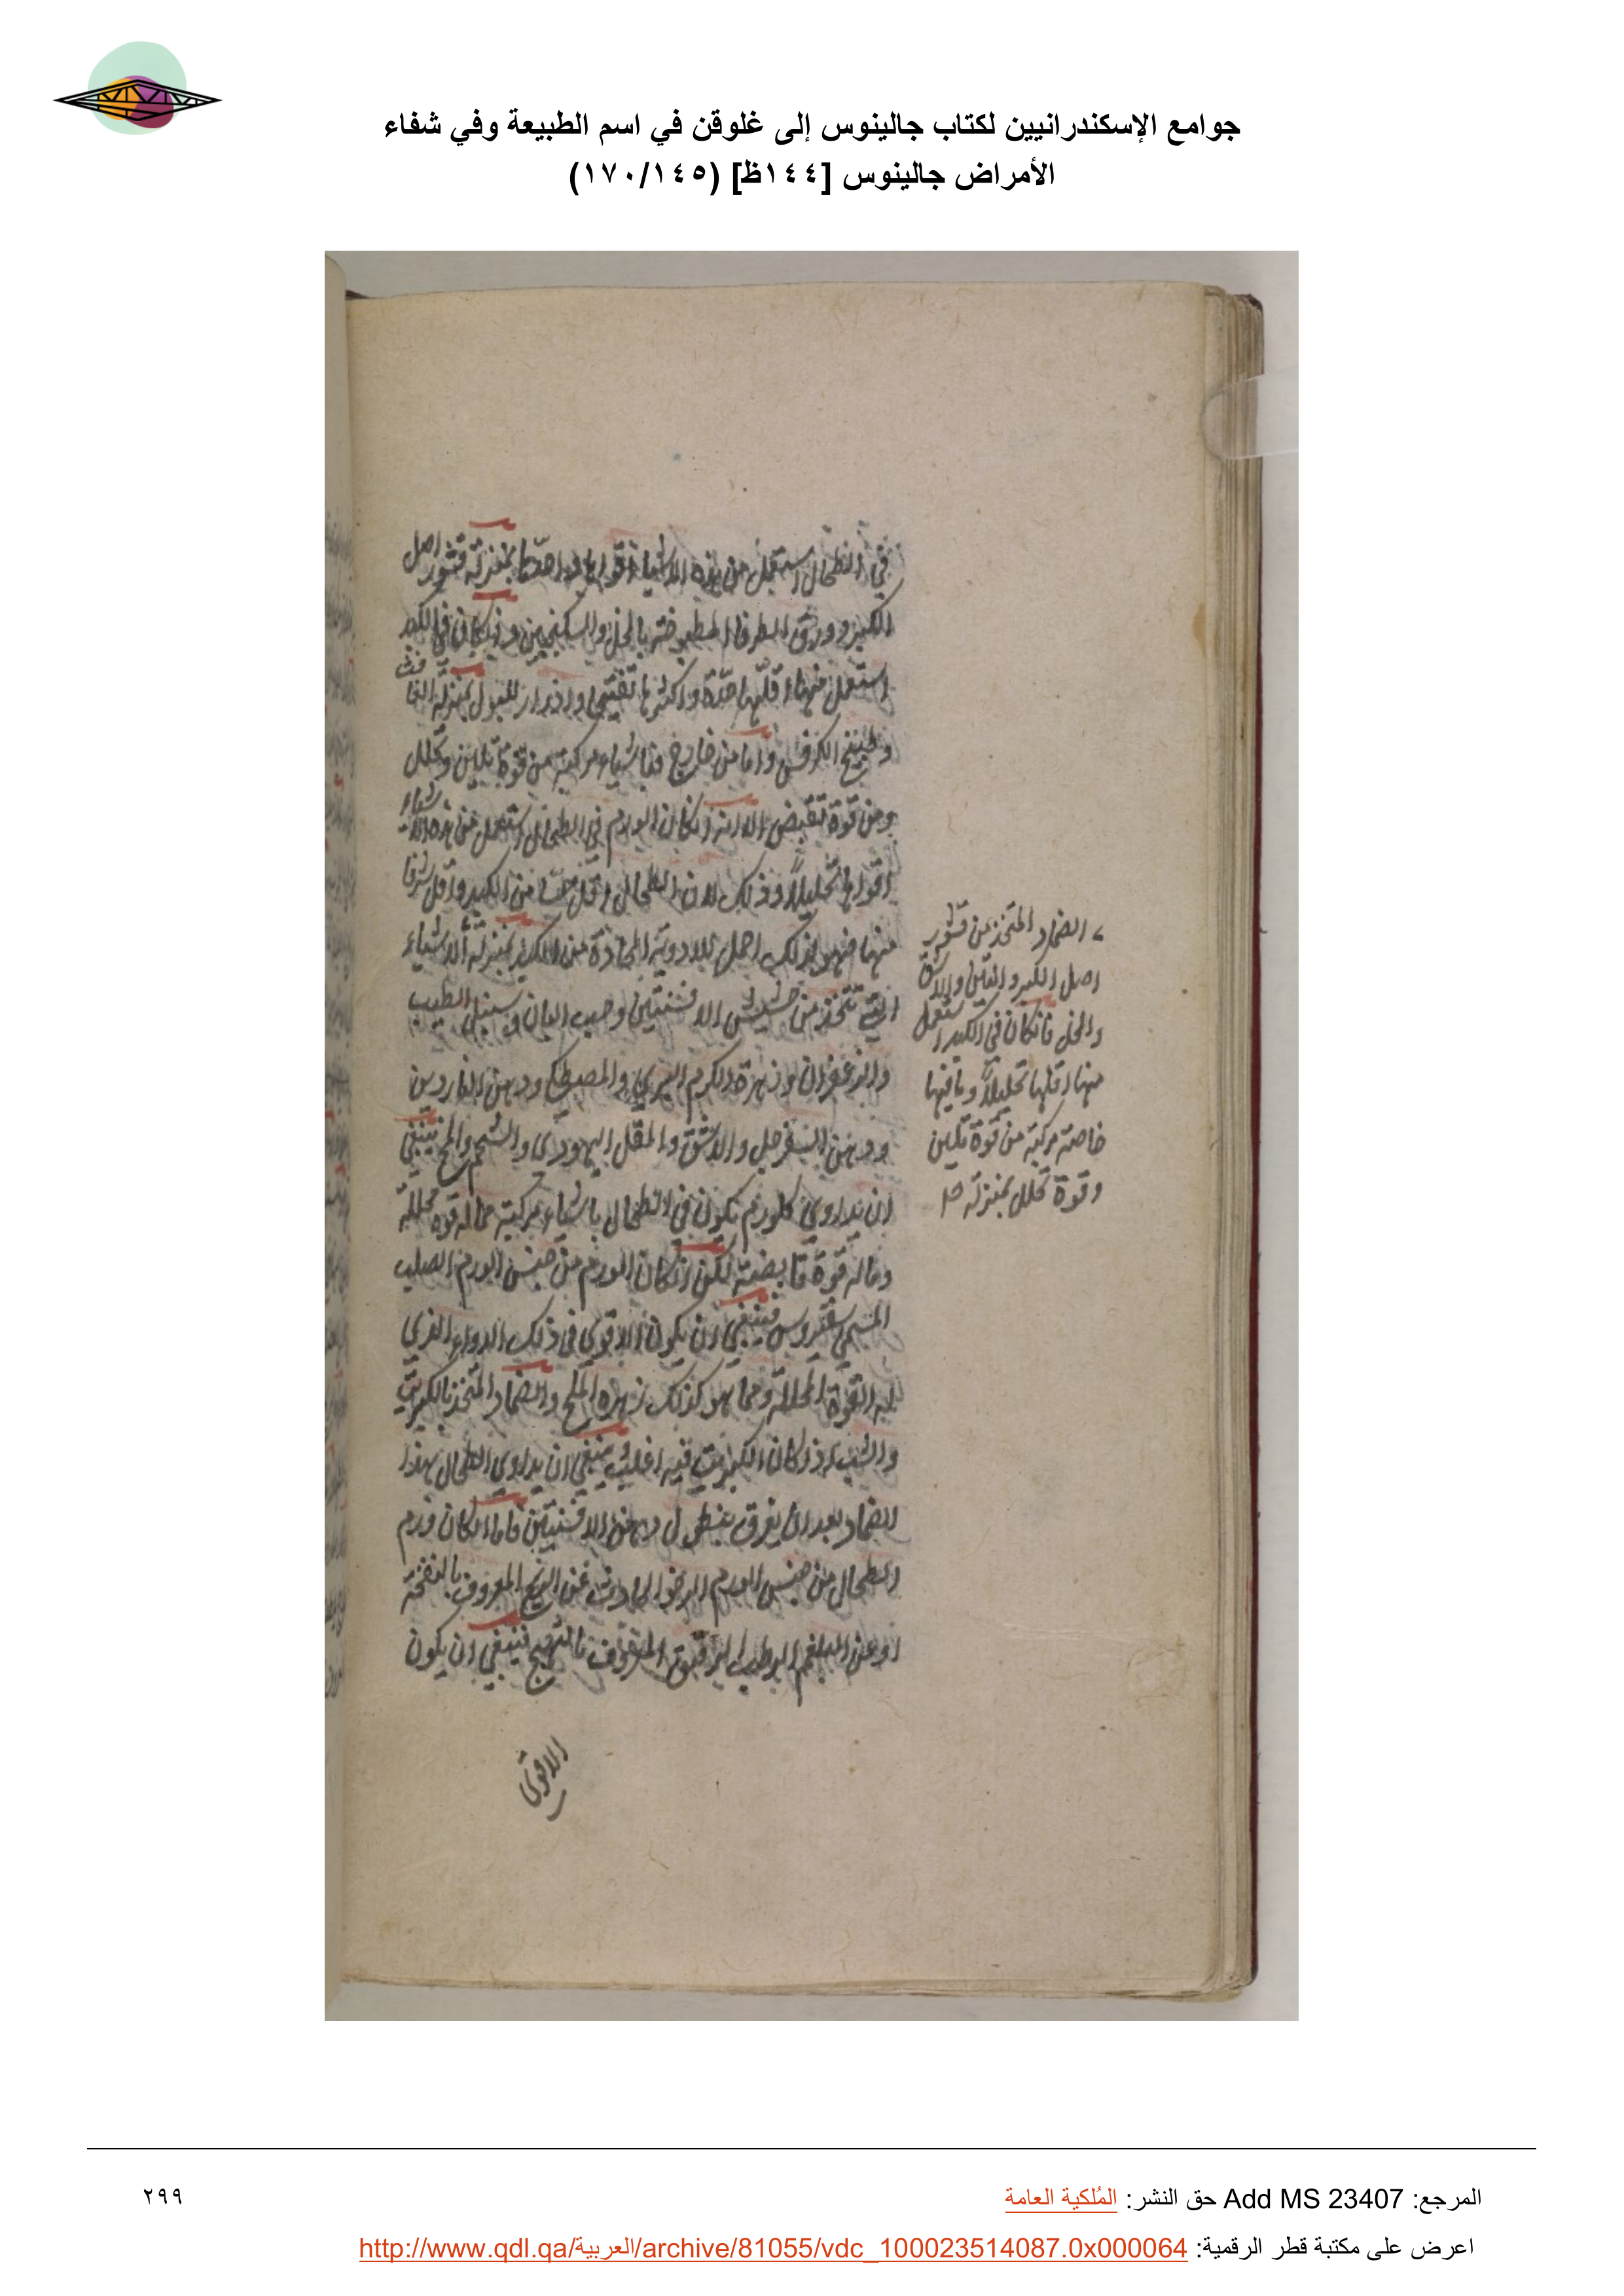 جوامع الإسكندرانيين لكتاب جالينوس إلى غلوقن في اسم الطبيعة وفي شفاء
الأمراض جالينوس [١٤٤ظ] (١٧٠/١٤٥)
في الطحال استعمل من هذه الاشياء اقواها واحدّها بمنزلة قشور اصل
الكبر وورق الطرفا المطبوخة بالخل والسكنجبين وان كان في الكبد
استعمل منها اقلّها حدّة واكثرها تفتيحا وادرارا للبول بمنزلة الغافث
وطبيخ الكرفس واما من خارج فباشياء مركبة من قوة تلين وتحلل
ومن قوة تقبض الا انه ان كان الورم في الطحال استعمل من هذه الاشياء
اقواها تحليلاً وذلك لان الطحال اقل حسّا من الكبد واقل شرفا
منها فهو لذلك احمل للادوية الحادة من الكبد بمنزلة الاشياء
التي تتخذ من حشيش الافسنتين وحب البان وسنبل الطيب
والزعفران وزهرة الكرم البري والمصطكى ودهن الناردين
ودهن السفرجل والاشق والمقل اليهودى والشحم والمخ ينبغي
ان يداوى كل ورم يكون في الطحال باشياء مركبة مما له قوة محللة
وما له قوة قابضة لكن ان كان الورم من جنس الورم الصلب
المسمى سقيروس فينبغي ان يكون الاقوى في ذلك الدواء الذي
له القوة المحللة ومما هو كذلك زهرة الملح والضماد المتخذ بالكبريت
والشب اذا كان الكبريت فيه اغلب ينبغي ان يداوى الطحال بهذا
الضماد بعد ان يعرق بنطول دهن الافسنتين فاما ان كان ورم
الطحال من جنس الورم الرخو الحادث عن الريح المعروف بالنفخة
او عن البلغم الرطب الرقيق المعروف بالتهيج فينبغي ان يكون
الاقوى
الضماد المتخذ من قشور
اصل الكبر والتين
والخل فان كان في الكبد استعمل
منها اقلها تحليلاً
خاصة مركبة من قوة تلين
وقوة تحلل بمنزلة
المرجع: Add MS 23407 حق النشر: المُلكية العامة
٢٩٩
اعرض على مكتبة قطر الرقمية: http://www.qdl.qa/العربية/archive/81055/vdc_100023514087.0x000064